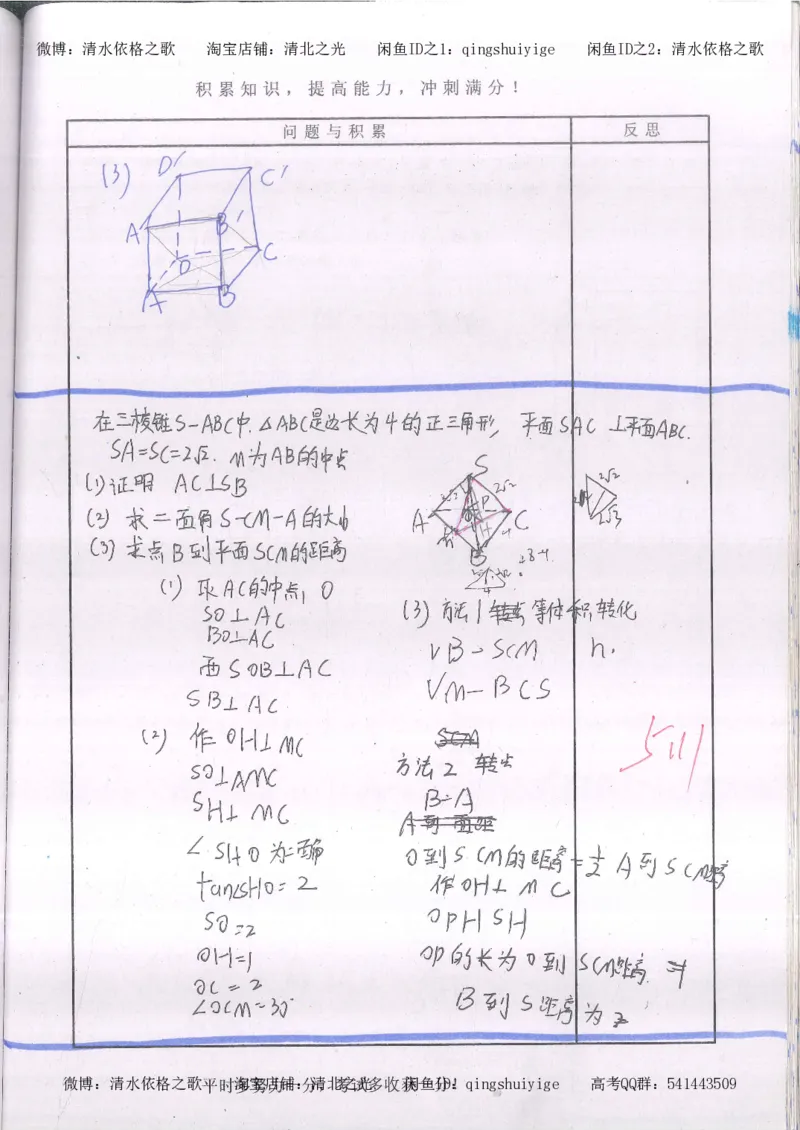 微博：清水依格之歌 淘宝店铺：清北之光 闲鱼ID之1：qingshuiyige 闲鱼ID之2：清水依格之歌
积累知识，提高能力，冲刺满分！
问题与积累 反思
(3)
D' C'
A' B'
D C
A B
在三棱锥S-ABC中,△ABC是边长为4的正三角形, 平面SAC⊥平面ABC.
SA=SC=2√2. M为AB的中点
(1)证明 AC⊥SB
(2) 求二面角S-CM-A的大小
(3)求点B到平面SCM的距离
S
A C
B
(1) 取AC的中点, O
SO⊥AC
BO⊥AC
面SOB⊥AC
SB⊥AC
(2) 作OH⊥MC
SO⊥AMC
SH⊥MC
∠SHO为二面角
tan∠SHO=2
SO=2
OH=1
OC=2
∠OCM=30°
(3) 方法1 等体积转化
VB-SCM h.
VM-BCS
方法2 转点
B=A
O到SCM的距离=1/2 A到SCM距离
作OH⊥MC
OP⊥SH
OP的长为O到SCM距离
B到S距离为2
511
微博：清水依格之歌 淘宝店铺：清北之光 闲鱼ID：qingshuiyige 高考QQ群：541443509